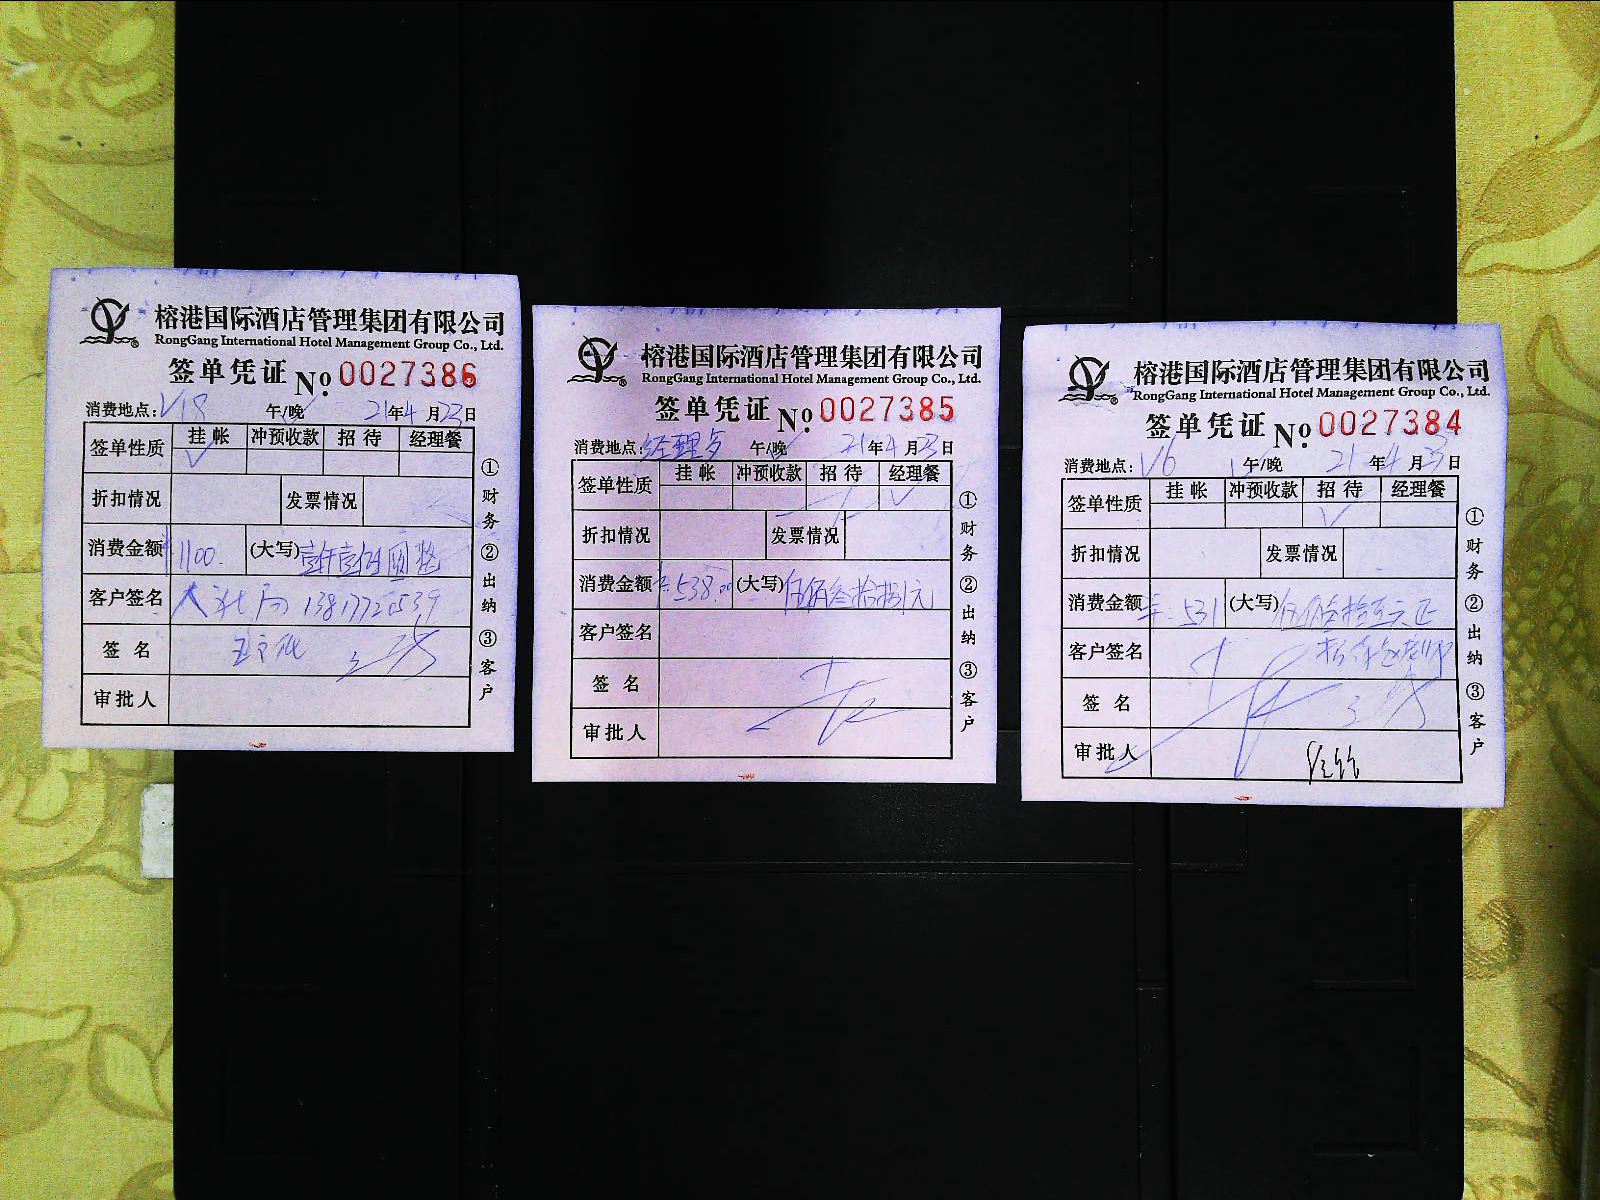 榕港国际酒店管理集团有限公司
RongGang International Hotel Management Group Co., Ltd.
签单凭证 No. 0027386
消费地点: V18 午/晚 21年4月23日
签单性质 挂帐 冲预收款 招待 经理餐
✓
折扣情况 发票情况
消费金额 ¥1100. (大写) 壹仟壹佰圆整
客户签名
签名
审批人
①财务②出纳③客户
榕港国际酒店管理集团有限公司
RongGang International Hotel Management Group Co., Ltd.
签单凭证 No. 0027385
消费地点: 经理 午/晚 21年4月23日
签单性质 挂帐 冲预收款 招待 经理餐
✓
折扣情况 发票情况
消费金额 538.00 (大写) 伍佰叁拾捌元
客户签名
签名
审批人
①财务②出纳③客户
榕港国际酒店管理集团有限公司
RongGang International Hotel Management Group Co., Ltd.
签单凭证 No. 0027384
消费地点: V6 午/晚 21年4月23日
签单性质 挂帐 冲预收款 招待 经理餐
✓
折扣情况 发票情况
消费金额 531 (大写)
客户签名
签名
审批人
①财务②出纳③客户